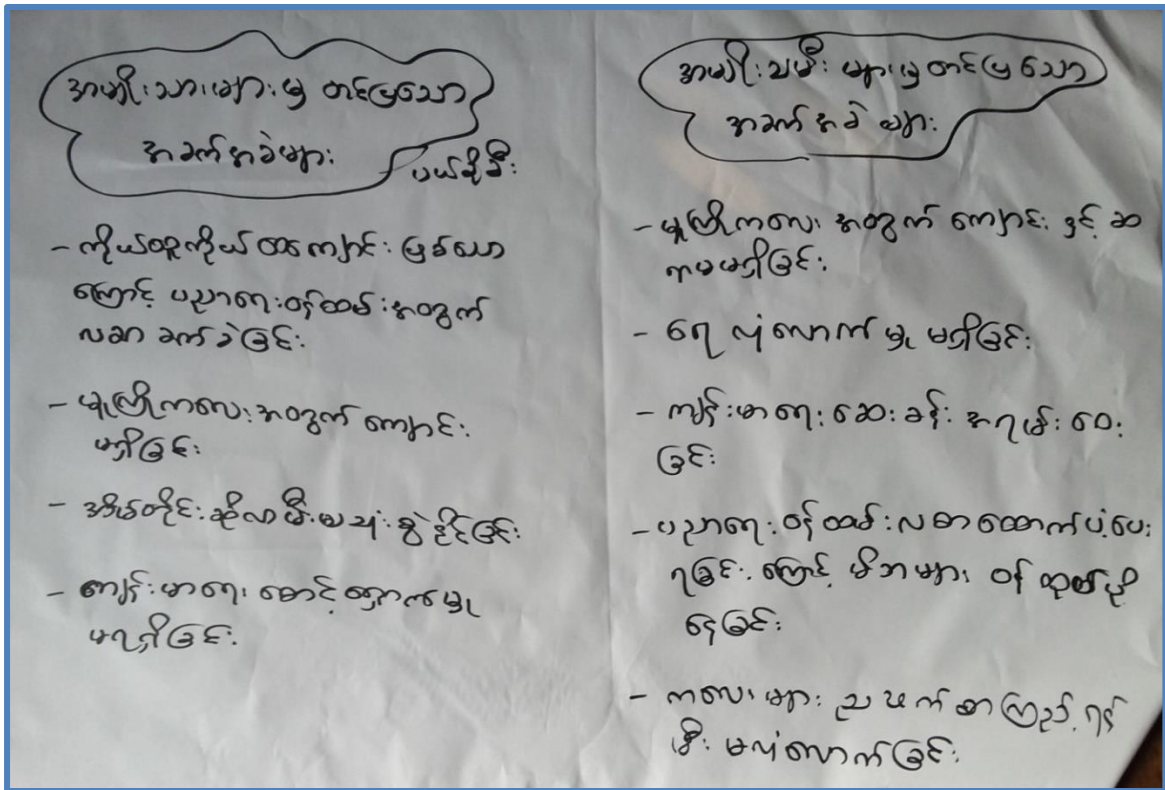 အမျိုးသားများမှ တင်ပြသော
အခက်အခဲများ
ပယ်ခိုဦး
- ကိုယ်ထူကိုယ်ထကျောင်း ဖြစ်သော
ကြောင့် ပညာရေးဝန်ထမ်းအတွက်
လစာ ခက်ခဲခြင်း
- မူကြိုကလေးအတွက် ကျောင်း
မရှိခြင်း
- အိမ်တိုင်းဆိုလာမီးမသုံးစွဲနိုင်ခြင်း
- ကျန်းမာရေး စောင့်ရှောက်မှု
မရရှိခြင်း
အမျိုးသမီးများမှတင်ပြသော
အခက်အခဲများ
- မူကြိုကလေး အတွက် ကျောင်း နှင့် ဆ
ရာမမရှိခြင်း
- ရေ လုံလောက်မှု မရှိခြင်း
- ကျန်းမာရေး ဆေးခန်း အရမ်းဝေး
ခြင်း
- ပညာရေးဝန်ထမ်းလစာထောက်ပံ့ပေး
ရခြင်းကြောင့် မိဘများ ဝန်ထုပ်ပိုး
နေခြင်း
- ကလေးများ ညဖက်စာကြည့်ရန်
မီး မလုံလောက်ခြင်း